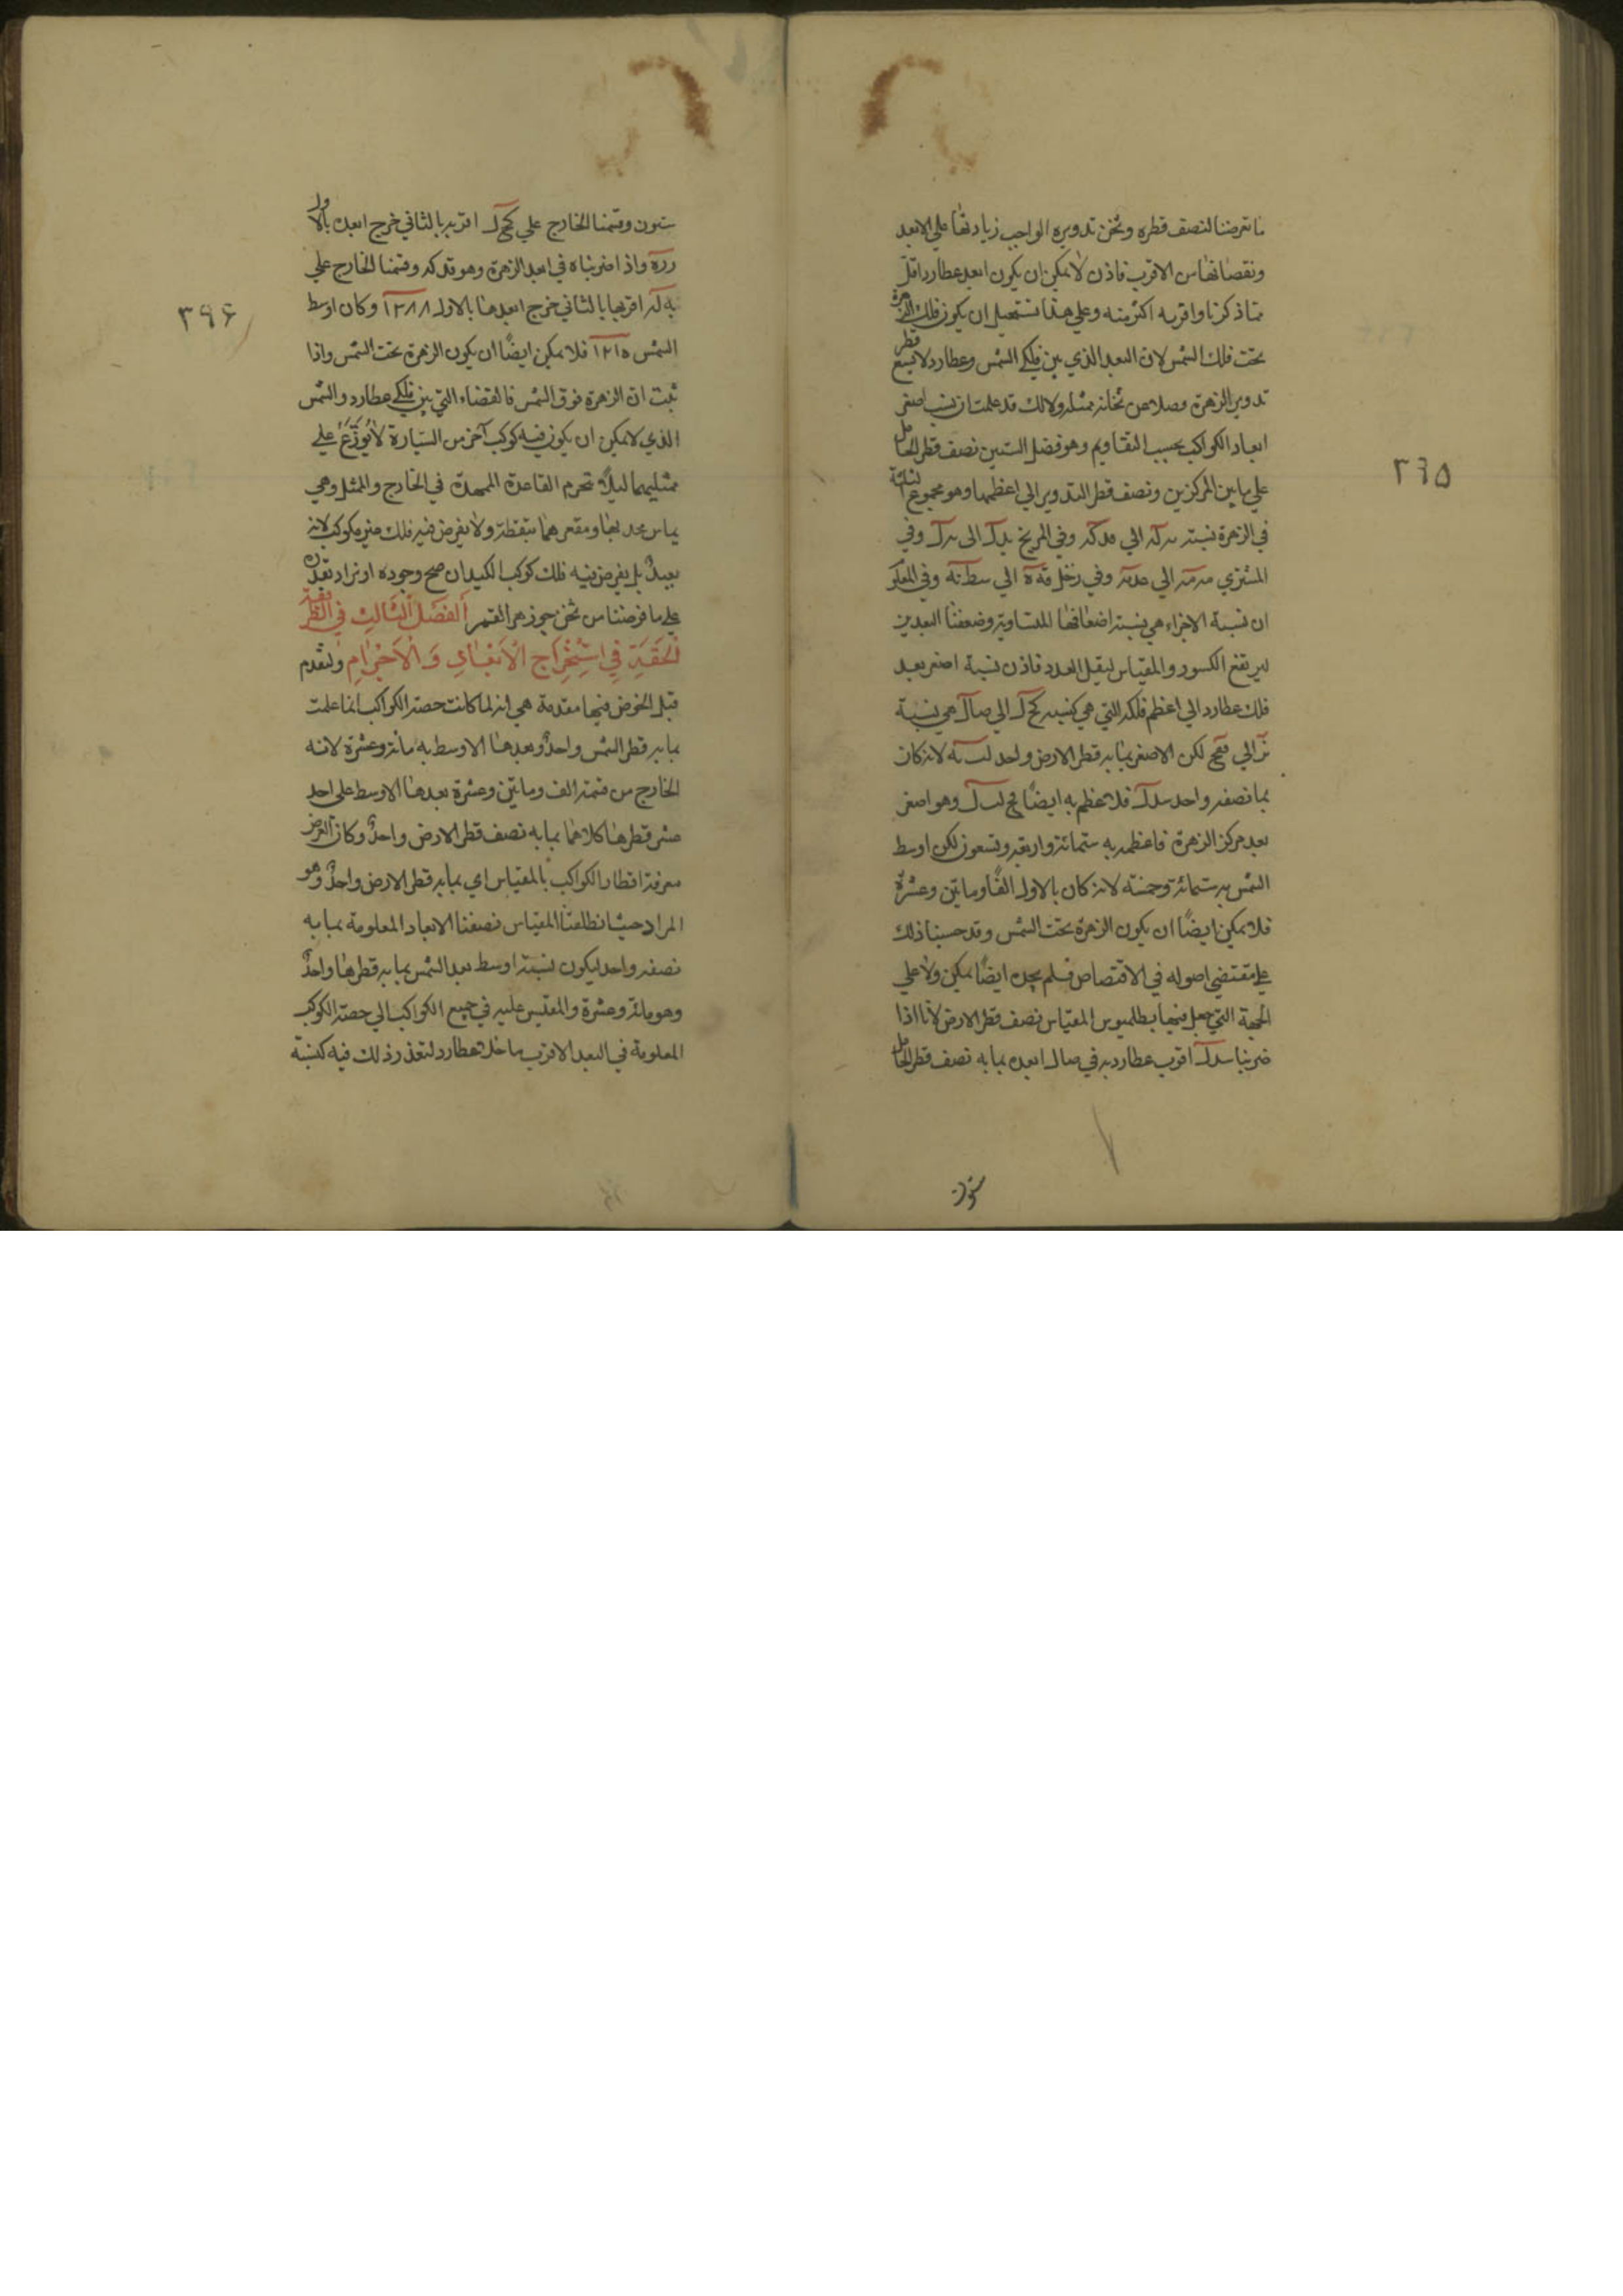 ما تعرضنا لنصف قطره وثخن تدويره الواجب زيادتها على الابعد
ونقصانها من الاقرب فاذن لا يمكن ان يكون ابعد عطارد اقل
مما ذكرنا واقربه اكثر منه وعلى هذا نستحيل ان يكون فلك الزهرة
تحت فلك الشمس لان البعد الذي بين فلكي الشمس وعطارد لا يسع قطر
تدوير الزهرة وفضلا عن ثخانة ممثله ولانك قد علمت ان نسب اصغر
ابعاد الكواكب بحسب التقاويم وهو فضل الستين نصف قطر الحامل
على ما بين المركزين ونصف قطر التدوير الي اعظمها وهو مجموع الثلثة
في الزهرة نسبته الي وفي المريخ الى وفي
المشتري الي وفي زحل الي وفي المعلوم
ان نسبة الاجزاء هي نسبة اضعافها المتساوية وضعفنا البعدين
ليرتفع الكسور والمقياس ليقل العدد فاذن نسبة اصغر بعد
فلك عطارد الي اعظم فلكه التي هي كنسبة الي هي نسبة
الي لكن الاصغر بما به قطر الارض واحد لانه كان
بما نصفه واحد فلاعظم به ايضًا وهو اصغر
بعد مركز الزهرة فاعظمه به ستمائة واربعة وتسعون لكن اوسط
الشمس به ستمائة وخمسة لانه كان بالاول الفًا ومايتين وعشرة
فلا يمكن ايضًا ان يكون الزهرة تحت الشمس وقد حسبنا ذلك
على مقتضى اصوله في الاقتصاص فلم يجده ايضًا يمكن ولا على
الجهة التي جعل فيها بطلميوس المقياس نصف قطر الارض لانا اذا
ضربنا اقرب عطارد به في ابعده بما به نصف قطر الحامل
ستون
٣٩٥
ستون وقسمنا الخارج علي اقربه بالثاني خرج ابعده بالاول
واذا ضربناه في ابعد الزهرة وهو وقسمنا الخارج علي
اقربها بالثاني خرج ابعدها بالاول ١٢٨٨ وكان اوسط
الشمس ١٢١٥ فلا يمكن ايضًا ان يكون الزهرة تحت الشمس واذا
ثبت ان الزهرة فوق الشمس فالفضاء التي بين فلكي عطارد والشمس
الذي لا يمكن ان يكون فيه كوكب آخر من السيارة لا يُوزَّعُ علي
ممثليهما ليلا تنخرم القاعدة الممهدة في الخارج والممثل وهي
تماس محدبيهما ومقعريهما بنقطة ولا يفرض فيه فلك غير مكوكب لانه
بعيدٌ بل يفرض فيه فلك كوكب الكيد ان صح وجوده او نزاد بقدره
علي ما فرضنا من ثخن جوزهر القمر الفصل الثالث في الطريقة
الحقة في استخراج الابعاد والاجرام ولنقدم
قبل الخوض فيها مقدمة هي انه لما كانت حصة الكواكب انما علمت
بما به قطر الشمس واحدٌ وبعدها الاوسط به مائة وعشرة لانه
الخارج من قسمة الف ومايتين وعشرة بعدها الاوسط على احد
عشر قطرها كلاهما بما به نصف قطر الارض واحدٌ وكان الغرض
معرفة اقطار الكواكب بالمقياس اي بما به قطر الارض واحدٌ وهو
المراد حيث اطلقنا المقياس نصفنا الابعاد المعلومة بما به
نصفه واحد ليكون نسبة اوسط بعد الشمس بما به قطرها واحدٌ
وهو مائة وعشرة والمقيس عليه في جميع الكواكب الي حصة الكوكب
المعلومة في البعد الاقرب ما خلا عطارد لتعذر ذلك فيه كنسبة
٣٩۶